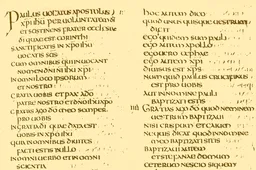 PAULUS UOCATUS APOSTOLUS
XPI IHU PER UOLUNTATEM DI
ET SOSTENES FRATER ECCLESIAE
DI QUAE EST CORINTHI
SANCTIFICATIS IN XPO IHU
UOCATIS SCIS
CUM OMNIBUS QUI INUOCANT
NOMEN DNI NI IHU XPI
IN OMNI LOCO IPSORUM
ET NOSTRO
GRATIA UOBIS ET PAX A DO
PATRE NOSTRO ET DNO IHU XPO
GRATIAS AGO DO MEO SEMPER
PRO UOBIS
IN GRATIA DI QUAE DATA EST
UOBIS IN XPO IHU
QUIA IN OMNIBUS DIUITES
FACTI ESTIS IN ILLO
IN OMNI UERBO ET IN OMNI
SCIENTIA
HOC AUTEM DICO
QUOD UNUSQUISQUE UESTRUM
DICIT
EGO QUIDEM SUM PAULI
EGO AUTEM APOLLO
EGO UERO CEPHAE
EGO AUTEM XPI
DIUISUS EST XPS
NUMQUID PAULUS CRUCIFIXUS
EST PRO UOBIS
AUT IN NOMINE PAULI
BAPTIZATI ESTIS
GRATIAS AGO DO QUOD NEMINEM
UESTRUM BAPTIZAUI
NISI CRISPUM ET GAIUM
NE QUIS DICAT QUOD IN NOMINE
MEO BAPTIZATI SITIS
BAPTIZAUI AUTEM
ET STEPHANAE DOMUM
CETERUM NESCIO SI QUEM